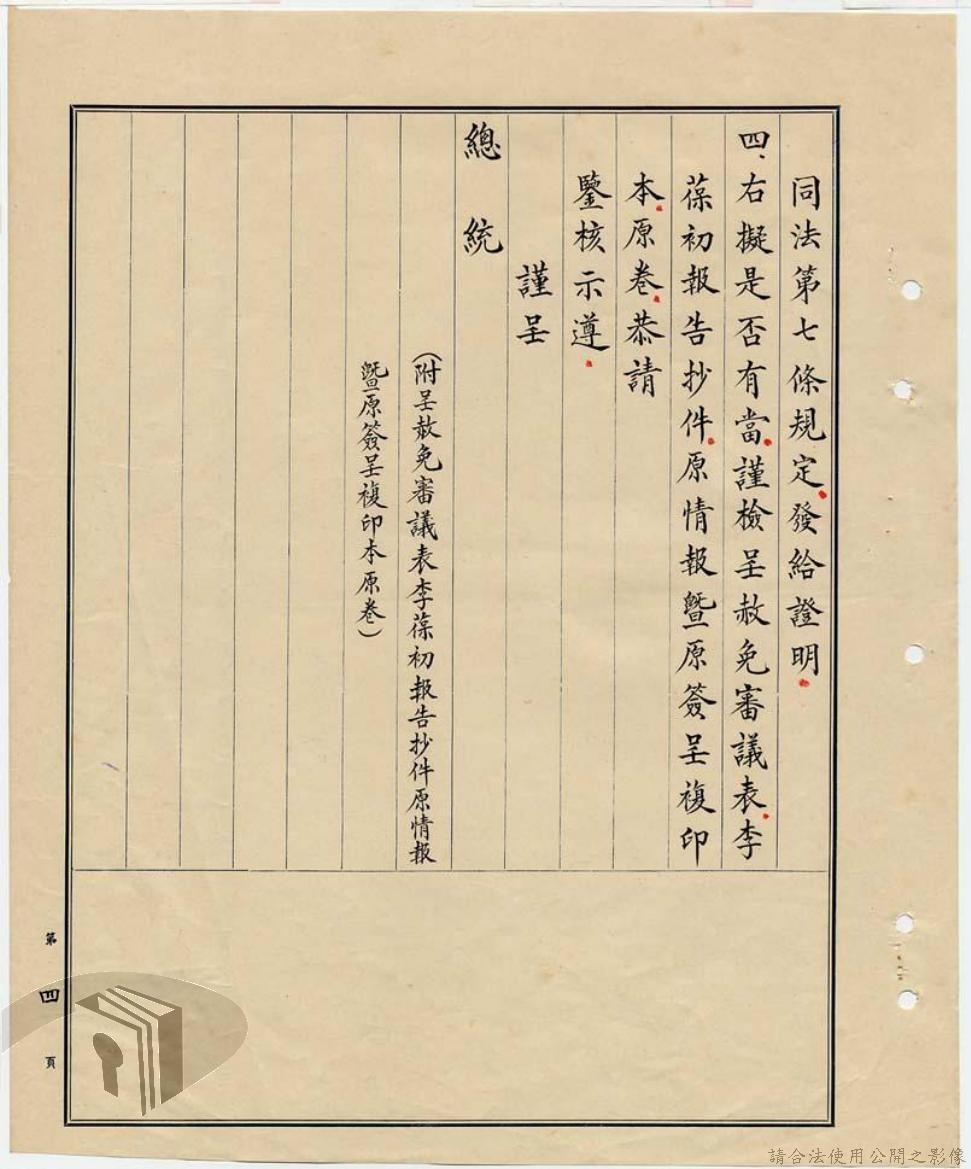 同法第七條規定、發給證明。
四、右擬是否有當、謹檢呈赦免審議表、李
葆初報告抄件、原情報暨原簽呈複印
本、原卷、恭請
鑒核示遵。
謹呈
總統
(附呈赦免審議表李葆初報告抄件原情報
暨原簽呈複印本原卷)
第四頁
請合法使用公開之影像